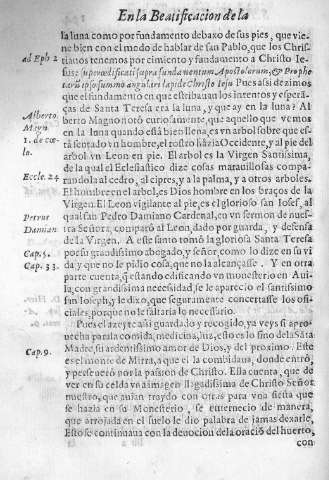 En la Beatificacion de la
la luna como por fundamento debaxo de sus pies, que vie-
ne bien con el modo de hablar de san Pablo, que los Chris-
ad Eph 2
tianos tenemos por cimiento y fundamento a Christo Ie-
sus: superædificati supra fundamentum Apostolorum, & Prophe
tarū ipso summo angulari lapide Christo Iesu Pues assi dezimos
que el fundamento en que estribauan los intentos y esperā-
ças de Santa Teresa era la luna, y que ay en la luna? Al
Alberto
Magn.
1. de cœ-
la.
berto Magno notò curiosamente, que aquello que vemos
en la luna quando està bien llena, es vn arbol sobre que es-
tà sentado vn hombre, el rostro hàzia Occidente, y al pie del
arbol vn Leon en pie. El arbol es la Virgen Santissima,
de la qual el Eclesiastico dize cosas marauillosas compa-
Eccle. 24
randola al cedro, al cipres, y a la palma, y a otros arboles.
El hombre en el arbol, es Dios hombre en los braços de la
Virgen. El Leon vigilante al pie, es el glorioso san Iosef, al
Petrus
Damian
qual san Pedro Damiano Cardenal, en vn sermon de nues-
tra Señora, comparò al Leon, dado por guarda, y defensa
de la Virgen. A este santo tomò la gloriosa Santa Teresa
Cap. 5.
por su grandissimo abogado, y señor, como lo dize en su vi
Cap. 33.
da, y que no le pidio cosa, que no la alcançasse. Y en otra
parte cuenta, q̃ estando edificando vn monesterio en Aui-
la, con grandissima necessidad, se le aparecio el santissimo
san Ioseph, y le dixo, que seguramente concertasse los ofi-
ciales, porque no le faltaria lo necessario.
Pues el azeyte assi guardado y recogido, ya veys si apro-
uecha para la comida, medicina, luz, esto es lo fino de la Sāta
Cap. 9.
Madre, su ardentissimo amor de Dios, y del proximo. Este
es el monte de Mirra, a que el la combidaua, donde entrò,
y perseuerò por la passion de Christo. Ella cuenta, que de
ver en su celda vna imagen llagadissima de Christo Señor
nuestro, que auian traydo con otras para vna fiesta que
se hazia en su Monesterio, se enternecio de manera,
que arrojada en el suelo le dio palabra de jamas dexarle,
Esto se continuaua con la deuocion de la oraciō del huerto,
con